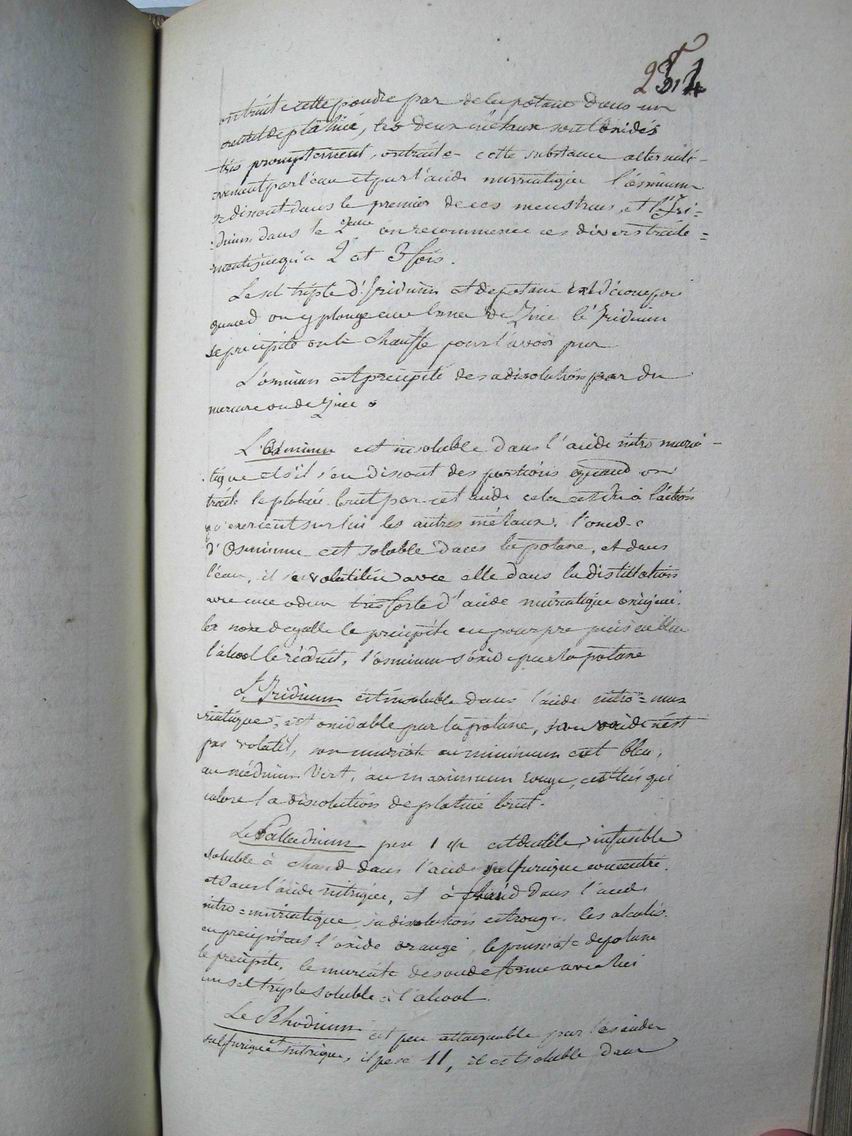 on traite cette poudre par de la potasse dans un
creuset de platine, les deux métaux sont oxidés
très promptement, on traite cette substance alternati-
vement par l'eau et par l'acide muriatique l'osmium
se dissout dans le premier de ces menstrues, et l'Iri-
dium dans le 2eme on recommence ces divers traite=
ments jusqu'à 2 et 3 fois.
Le sel triple d'Iridium et de potasse est décomposé
quand on y plonge une lame de Zinc le Iridium
se précipite on le chauffe pour l'avoir pur
L'osmium est précipité de sa dissolution par du
mercure ou du Zinc.
L'Osmium est insoluble dans l'acide nitro muria-
tique et s'il s'en dissout des portions quand on
traite le platine brut par cet acide cela est dû à l'action
qu'exercent sur lui les autres métaux. l'oxide
d'Osmium est soluble dans la potasse, et dans
l'eau, il se volatilise avec elle dans la distillation
avec une odeur très forte d'acide muriatique oxigéné.
la noix de galle le précipite en pourpre puis en bleu
l'alcool le réduit, l'osmium s'oxide par la potasse
L'Iridium est insoluble dans l'acide nitro=mur
iatique, est oxidable par la potasse, son oxide n'est
pas volatil, son muriate au minimum est bleu,
au médium Vert, au maximum rouge, c'est lui qui
colore la dissolution de platine brut.
Le Palladium pese 1 est ductile, infusible
soluble à chaud dans l'acide sulfurique concentré.
et dans l'acide nitrique, et à froid dans l'acide
nitro=muriatique, sa dissolution est rouge. les alcalis
en précipitent l'oxide orangé, le prussiate de potasse
le précipite, le muriate de soude forme avec lui
un sel triple soluble à l'alcool.
Le Rhodium est peu attaquable par les acides
sulfurique et nitrique, il pese 11, il est soluble dans